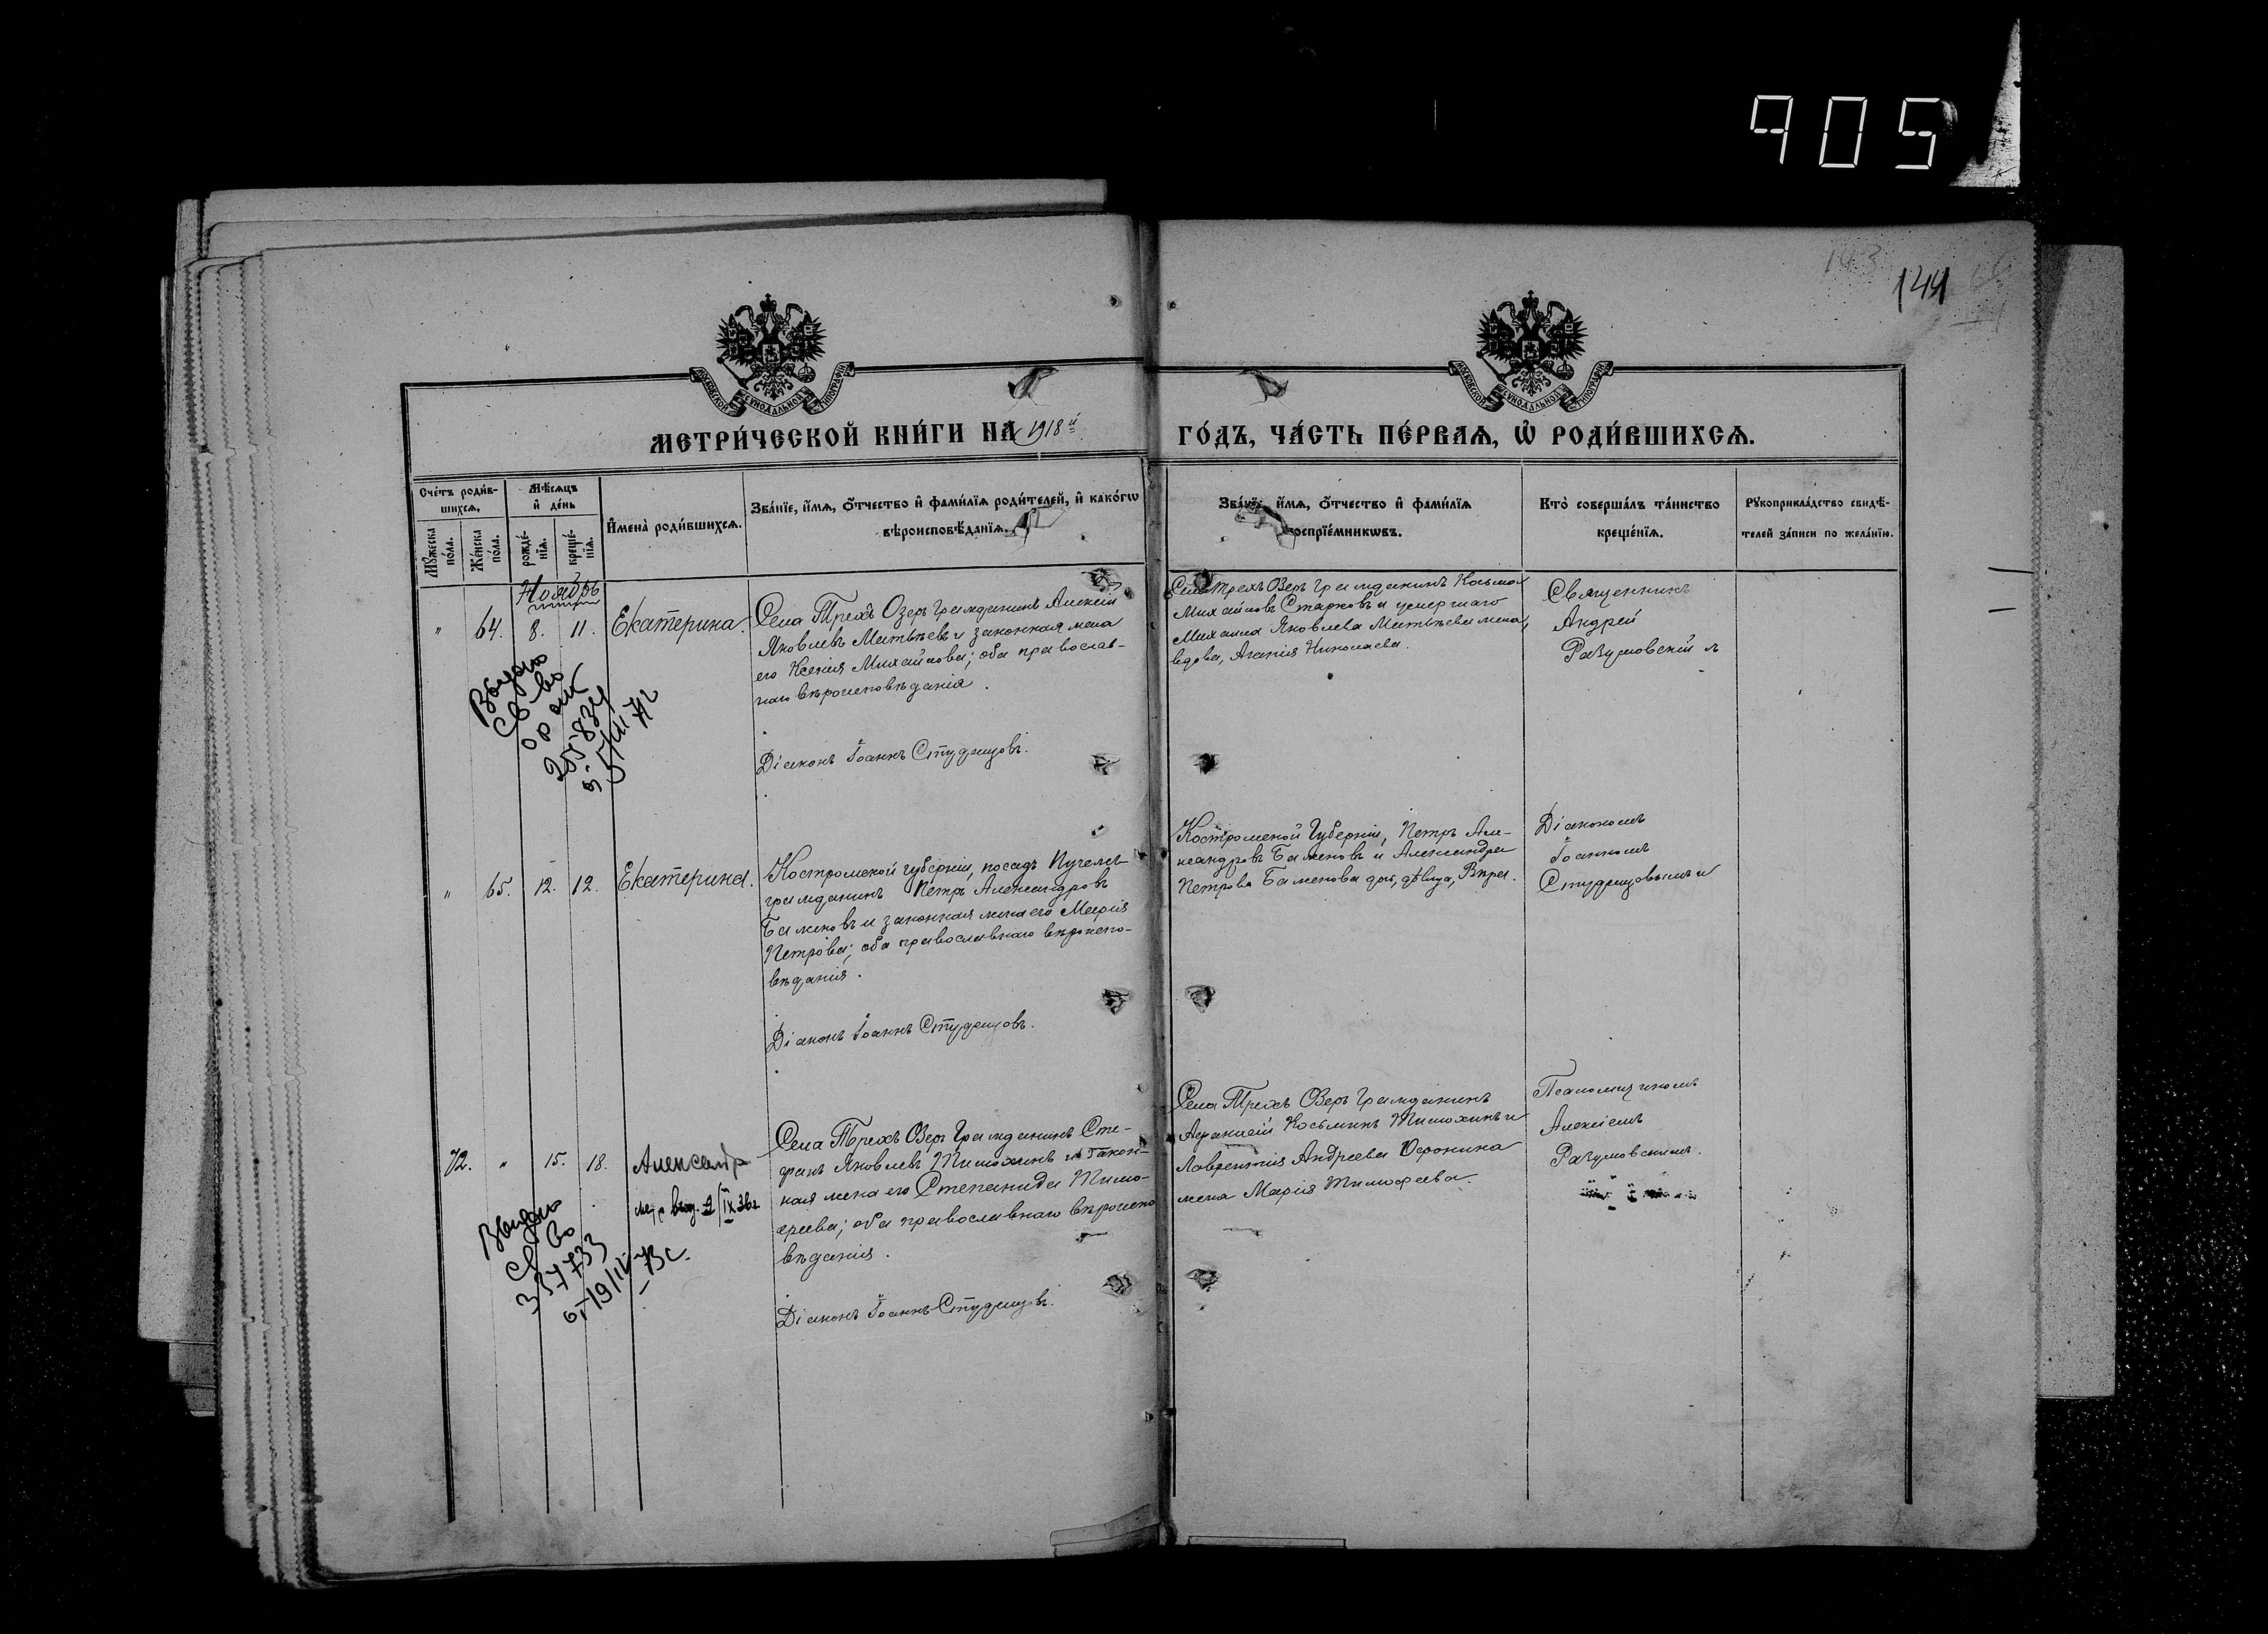 905
144
МОСКОВСКОЙ СѴНОДАЛЬНОЙ ТИПОГРАФІИ
МОСКОВСКОЙ СѴНОДАЛЬНОЙ ТИПОГРАФІИ
МЕТРИ́ЧЕСКОЙ КНИ́ГИ НА 1918й ГО́ДЪ, ЧА́СТЬ ПЕ́РВАѦ, Ѡ҆ РОДИ́ВШИХСѦ.
Сче́тъ роди́в-
шихсѧ,
Мꙋ́жеска
по́ла.
Же́нска
по́ла.
Мѣ́сѧцъ
и҆ де́нь
рожде́-
нїѧ.
креще́-
нїѧ.
И҆мена̀ роди́вшихсѧ.
Зва́нїе, и҆́мѧ, ѻ҆́тчество и҆ фами́лїѧ роди́телей, и҆ како́гѡ
вѣроисповѣ́данїѧ.
Зва́нїе, и҆́мѧ, ѻ҆́тчество и҆ фами́лїѧ
воспрїе́мникѡвъ.
Кто̀ соверша́лъ та́инство
креще́нїѧ.
Рꙋкоприкла́дство свидѣ́-
телей за́писи по жела́нїю.
Ноябрь
" 64. 8. 11. Екатерина.
Села Трехъ Озеръ гражданинъ Алексій
Яковлевъ Матвѣевъ и законная жена
его Ксенія Михайлова; оба православ-
наго вѣроисповѣданія.
Діаконъ Іоаннъ Студенцовъ.
Села Трехъ Озеръ гражданинъ Косьма
Михайловъ Старковъ и умершаго
Михаила Яковлева Матвѣева жена,
вдова, Агапія Николаева.
Священникъ
Андрей
Разумовскій
Выдано
св-во
205834
" 65. 12. 12. Екатерина.
Костромской губерніи, посадъ Пучежъ
гражданинъ Петръ Александровъ
Баженовъ и законная жена его Марія
Петрова; оба православнаго вѣроиспо-
вѣданія.
Діаконъ Іоаннъ Студенцовъ.
Костромской Губерніи, Петръ Але-
ксандровъ Баженовъ и Александра
Петрова Баженова дочь, дѣвица, Вѣра.
Діакономъ
Іоанномъ
Студенцовымъ
72. " 15. 18. Александр
IX 36г
Села Трехъ Озеръ Гражданинъ Сте-
фанъ Яковлевъ Тимохинъ и закон-
ная жена его Степанида Тимо-
феева; оба православнаго вѣроиспо
вѣданія.
Діаконъ Іоаннъ Студенцовъ.
Села Трехъ Озеръ Гражданинъ
Косьминъ Тимохинъ и
Лаврентія Андреева Воронина
жена Марія Тимофеева.
Псаломщикомъ
Алексіемъ
Разумовскимъ.
Выдано
св-во
357733